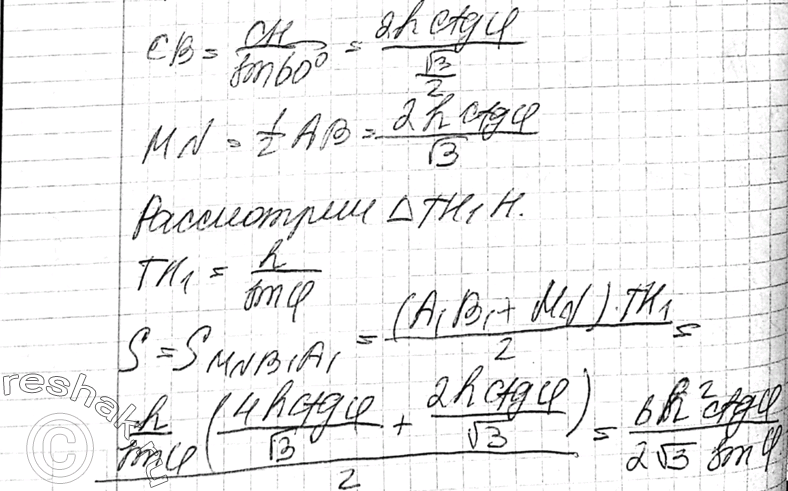 CB = CH / sin60° = 2h ctgφ / (√3/2)
MN = 1/2 AB = 2h ctgφ / √3
Рассмотрим △TH₁H.
TH₁ = h / sinφ
S = S MNB₁A₁ = (A₁B₁ + MN)·TH₁ / 2 =
h/sinφ (4h ctgφ/√3 + 2h ctgφ/√3) / 2 = 6h² ctgφ / 2√3 sinφ
© reshak.ru